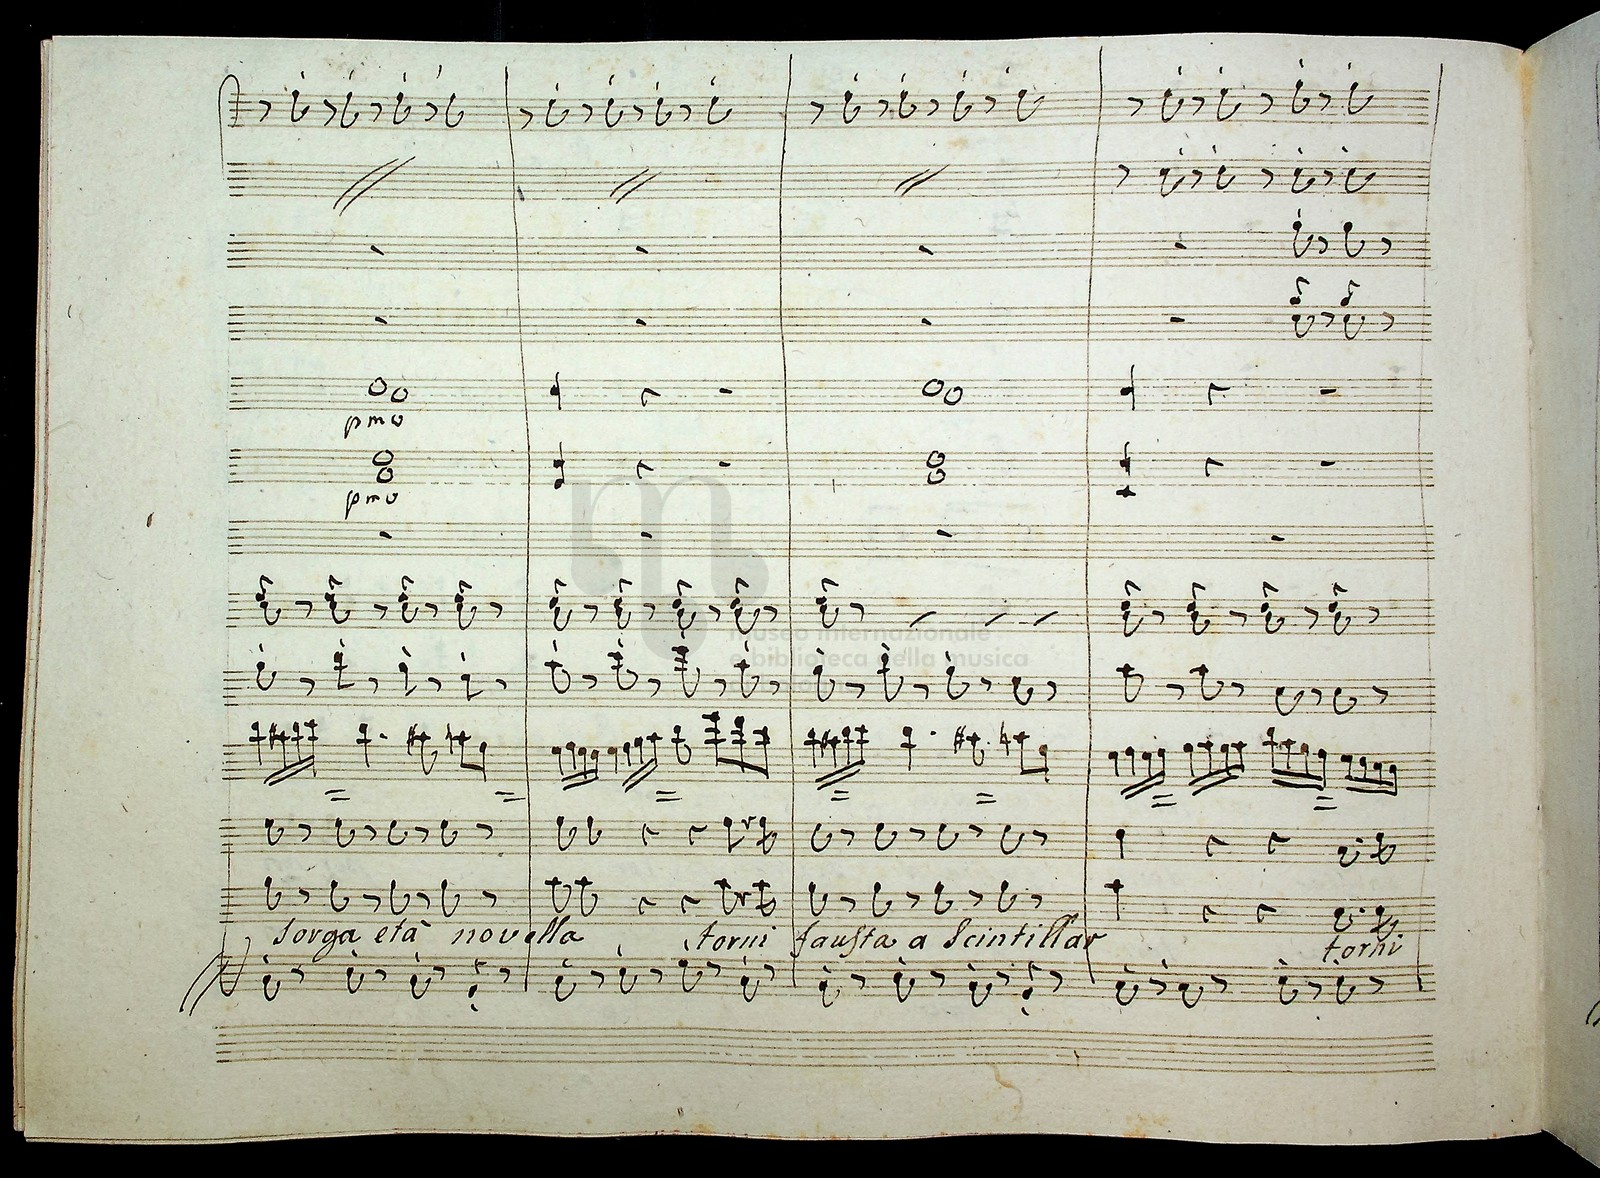 pmo
pmo
museo internazionale
e biblioteca della musica
Sorga età novella torni fausta a Scintillar torni